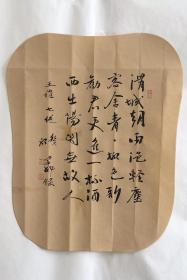 渭城朝雨浥輕塵
客舍青々柳色新
勸君更進一杯酒
西出陽関無故人
王維七絕